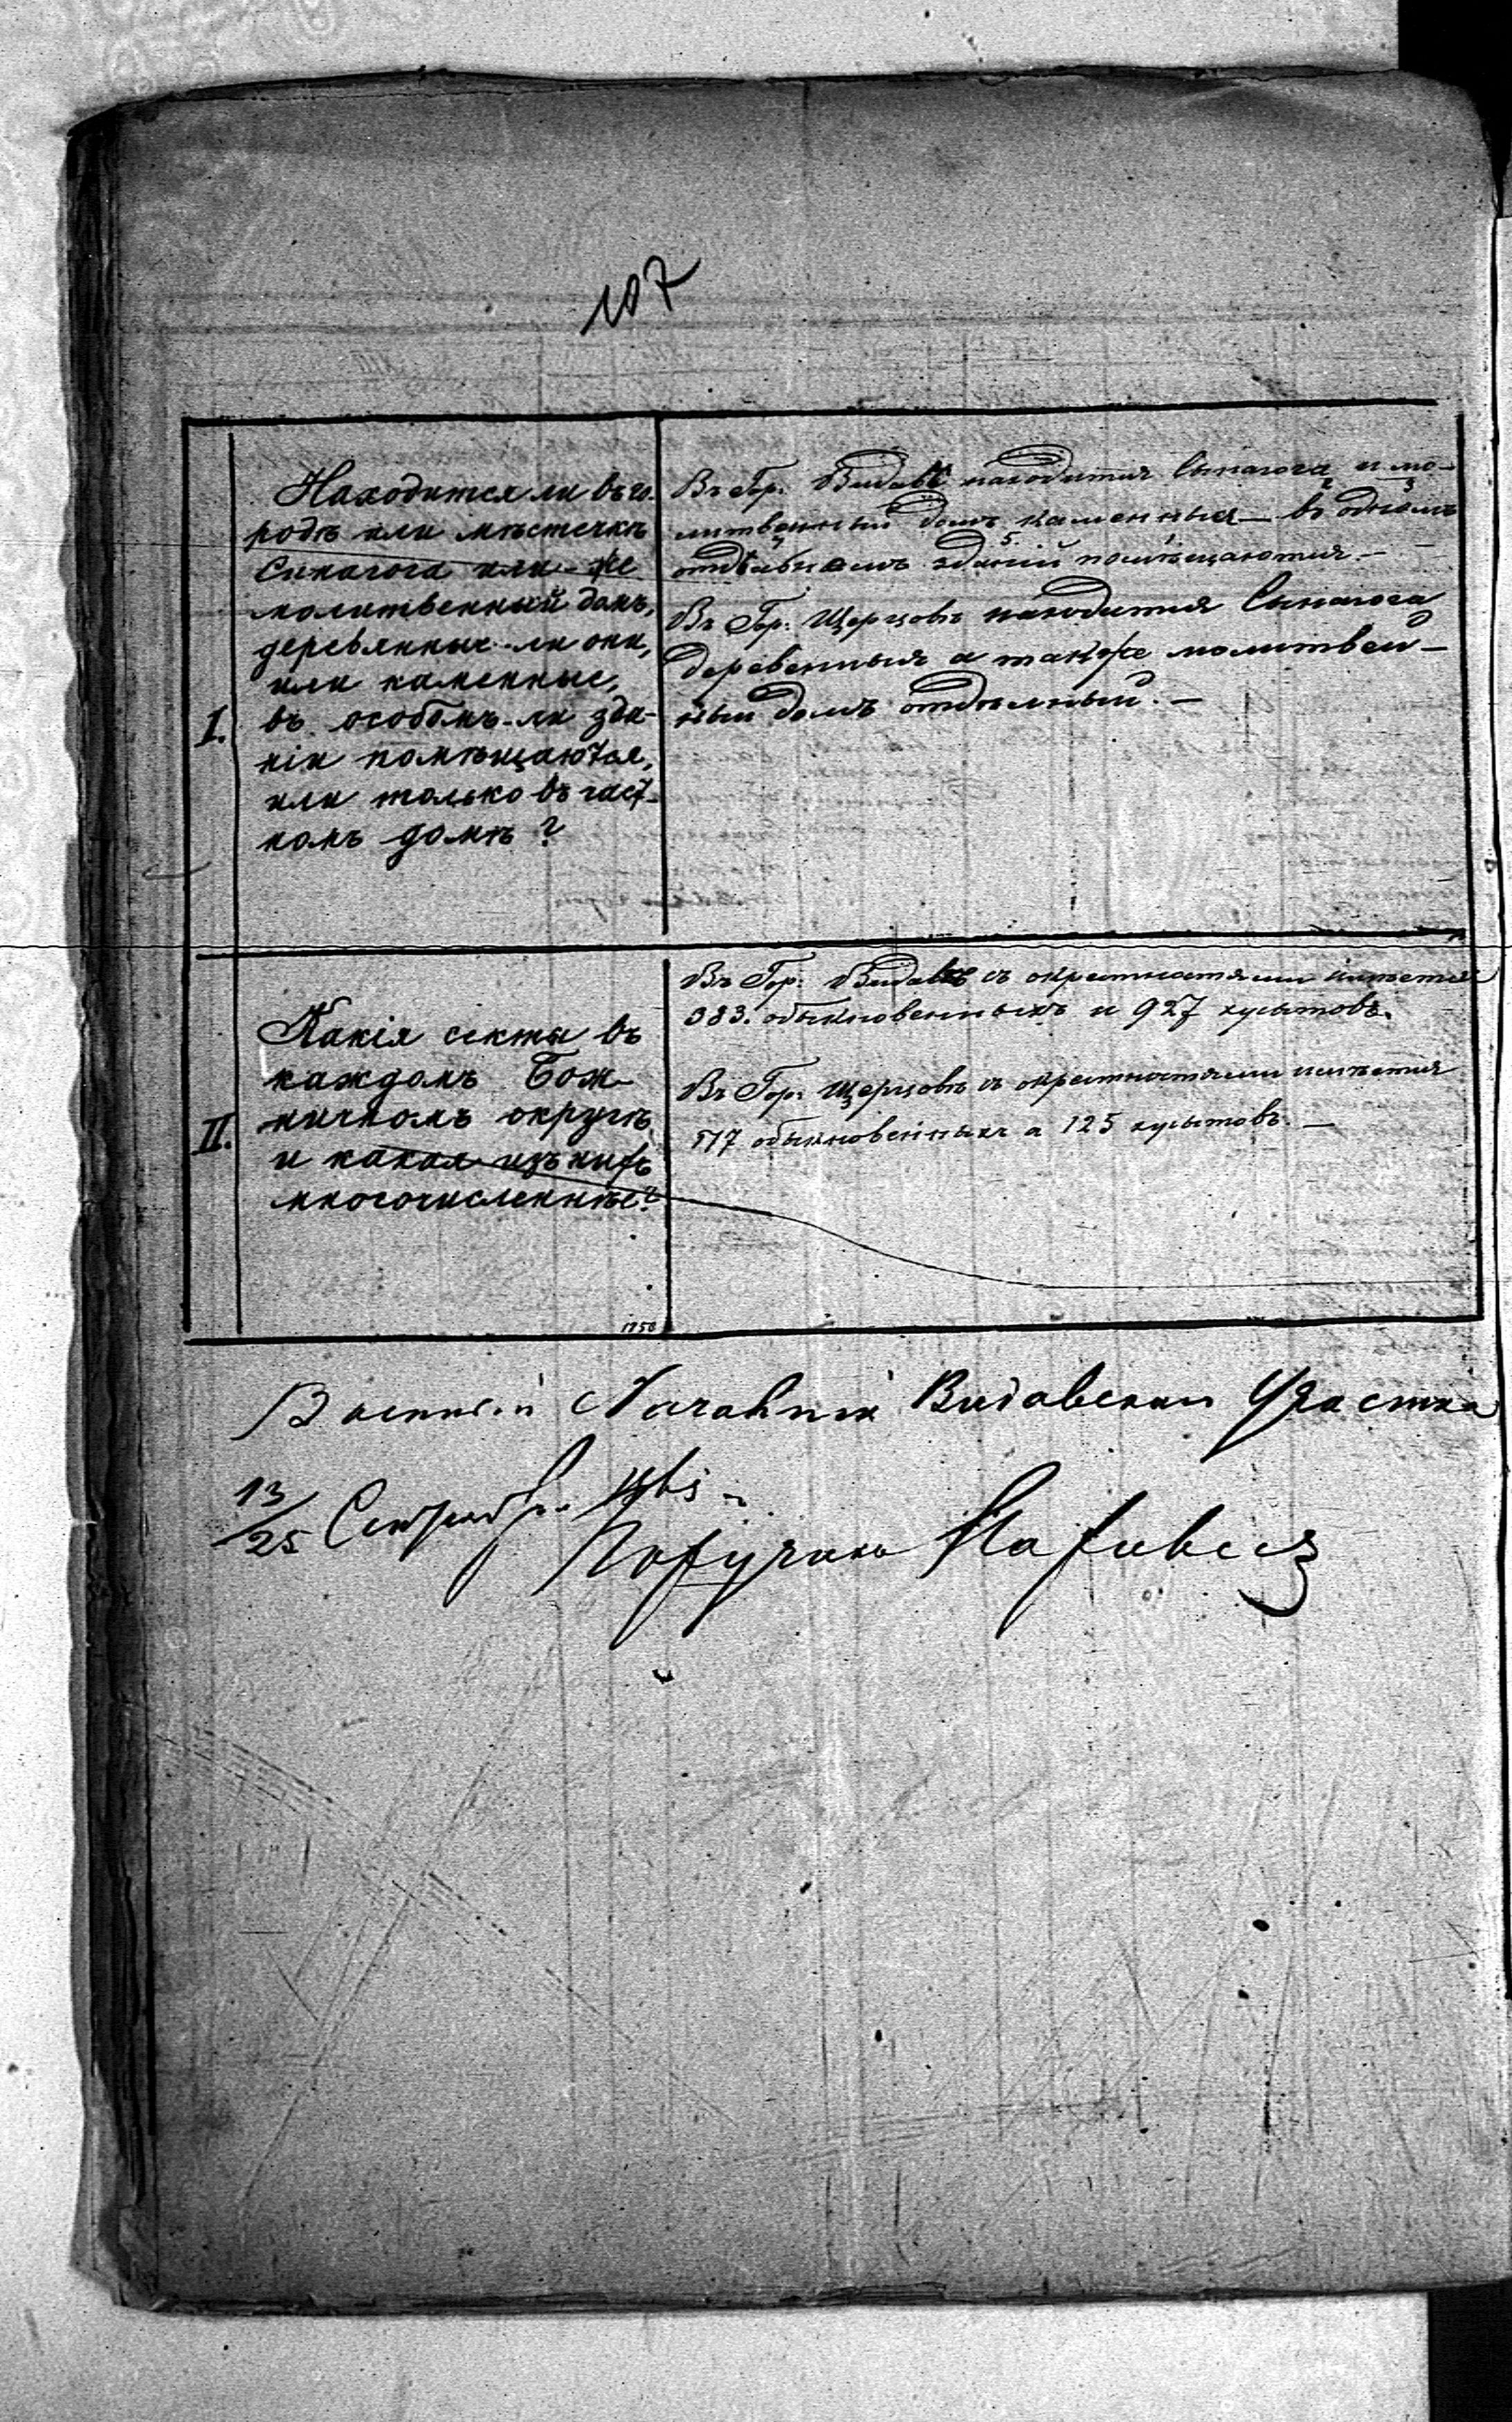 107
I.
Находится ли въ го-
родѣ или мѣстечкѣ
Синагога или-же
молитвенный домъ,
деревянные-ли они,
или каменные,
въ особомъ-ли зда-
ніи помѣщаются,
или только въ част-
номъ домѣ?
Въ Гор. Видавѣ находится Сынагога и мо-
литвенный домъ каменныя — въ одномъ
зданій помѣщаются. —
Въ Гор. Щерцовѣ находится Сынагога
деревенныя а также молитвен-
ный домъ отдѣлный. —
II.
Какія секты въ
каждомъ Бож-
ничномъ округѣ
и какая изъ нихъ
многочисленнѣе?
Въ Гор. Видавѣ съ окрестностями имѣется
383. обыкновенныхъ и 927 хусытовъ.
Въ Гор. Щерцовѣ съ окрестностями имѣется
517 обыкновенныхъ а 125 хусытовъ. —
1958
Военный Началникъ Видавскаго Участка
13/25 Сентября
Поручикъ